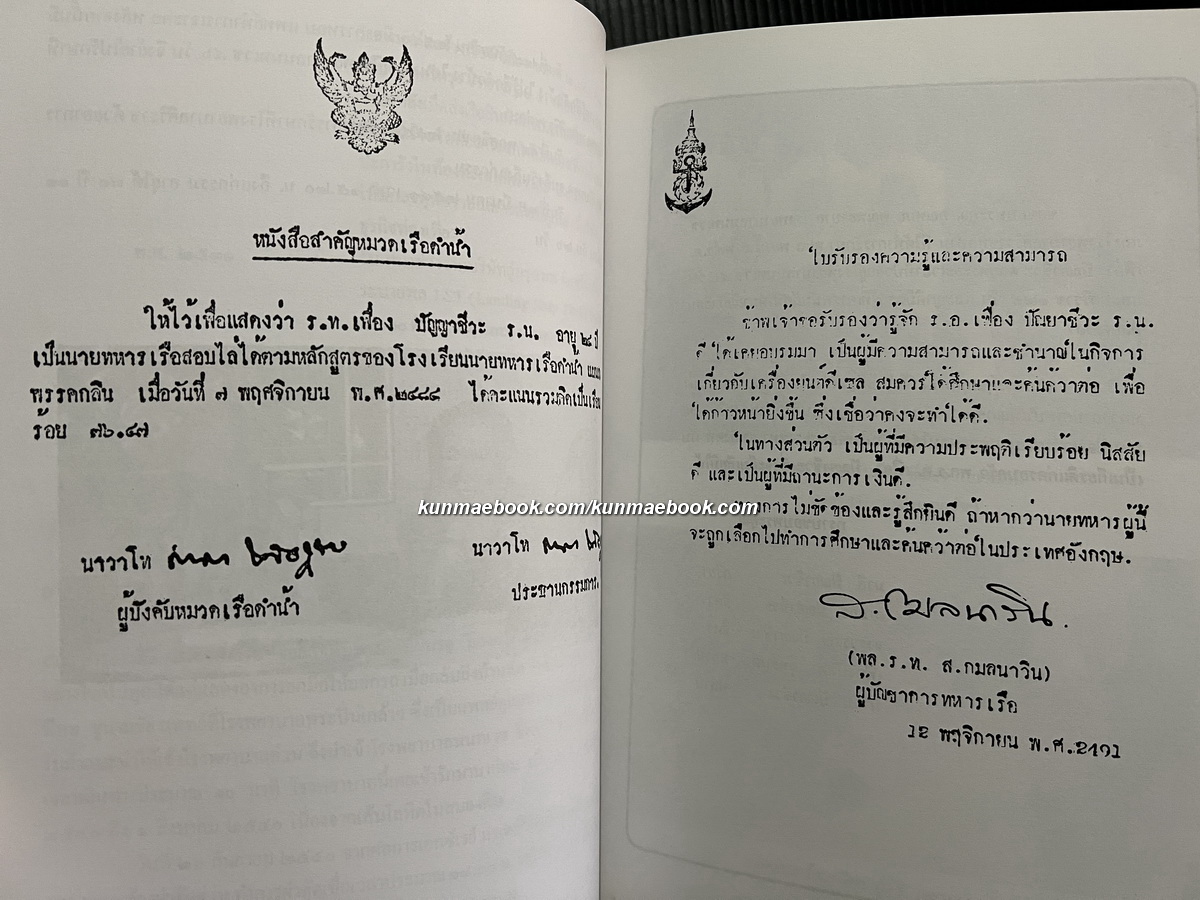 หนังสือสำคัญหมวดเรือดำน้ำ
ให้ไว้เพื่อแสดงว่า ร.ท.เฟื่อง ปัญญาชีวะ ร.น. อายุ ๒๘ ปี
เป็นนายทหารเรือสอบไล่ได้ตามหลักสูตรของโรงเรียนนายทหารเรือดำน้ำ
พรรคกลิน เมื่อวันที่ ๗ พฤศจิกายน พ.ศ.๒๔๘๔ ได้คะแนนรวมคิดเป็นเรือน
ร้อย ๗๖.๔๗
นาวาโท
ผู้บังคับหมวดเรือดำน้ำ
นาวาโท
ประธานกรรมการ
ใบรับรองความรู้และความสามารถ
ข้าพเจ้าขอรับรองว่ารู้จัก ร.อ.เฟื่อง ปัณยาชีวะ ร.น.
ดี ได้เคยอบรมมา เป็นผู้มีความสามารถและชำนาญในกิจการ
เกี่ยวกับเครื่องยนต์ดีเซล สมควรได้ศึกษาและค้นคว้าต่อ เพื่อ
ได้ก้าวหน้ายิ่งขึ้น ซึ่งเชื่อว่าคงจะทำได้ดี.
ในทางส่วนตัว เป็นผู้ที่มีความประพฤติเรียบร้อย นิสสัย
ดี และเป็นผู้ที่มีถานะการเงินดี.
ทางการไม่ขัดข้องและรู้สึกยินดี ถ้าหากว่านายทหารผู้นี้
จะถูกเลือกไปทำการศึกษาและค้นคว้าต่อในประเทศอังกฤษ.
ส.กมลนาวิน.
(พล.ร.ท. ส.กมลนาวิน)
ผู้บัญชาการทหารเรือ
12 พฤศจิกายน พ.ศ.2491
kunmaebook.com/kunmaebook.com